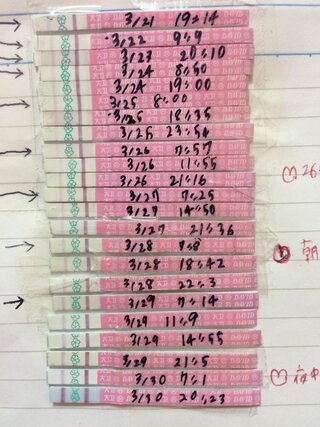 3/21 19:14
3/22 9:9
3/23 20:10
3/24 8:50
3/24 19:00
3/25 8:00
3/25 18:35
3/25 23:54
3/26 7:57
3/26 11:55
♡26
3/26 21:16
3/27 7:25
3/27 14:50
3/27 21:36
3/28 7:8
朝
3/28 18:42
3/28 22:3
3/29 7:14
3/29 11:9
3/29 14:55
3/29 21:5
3/30 7:1
♡夜中
3/30 20:23
DAVID